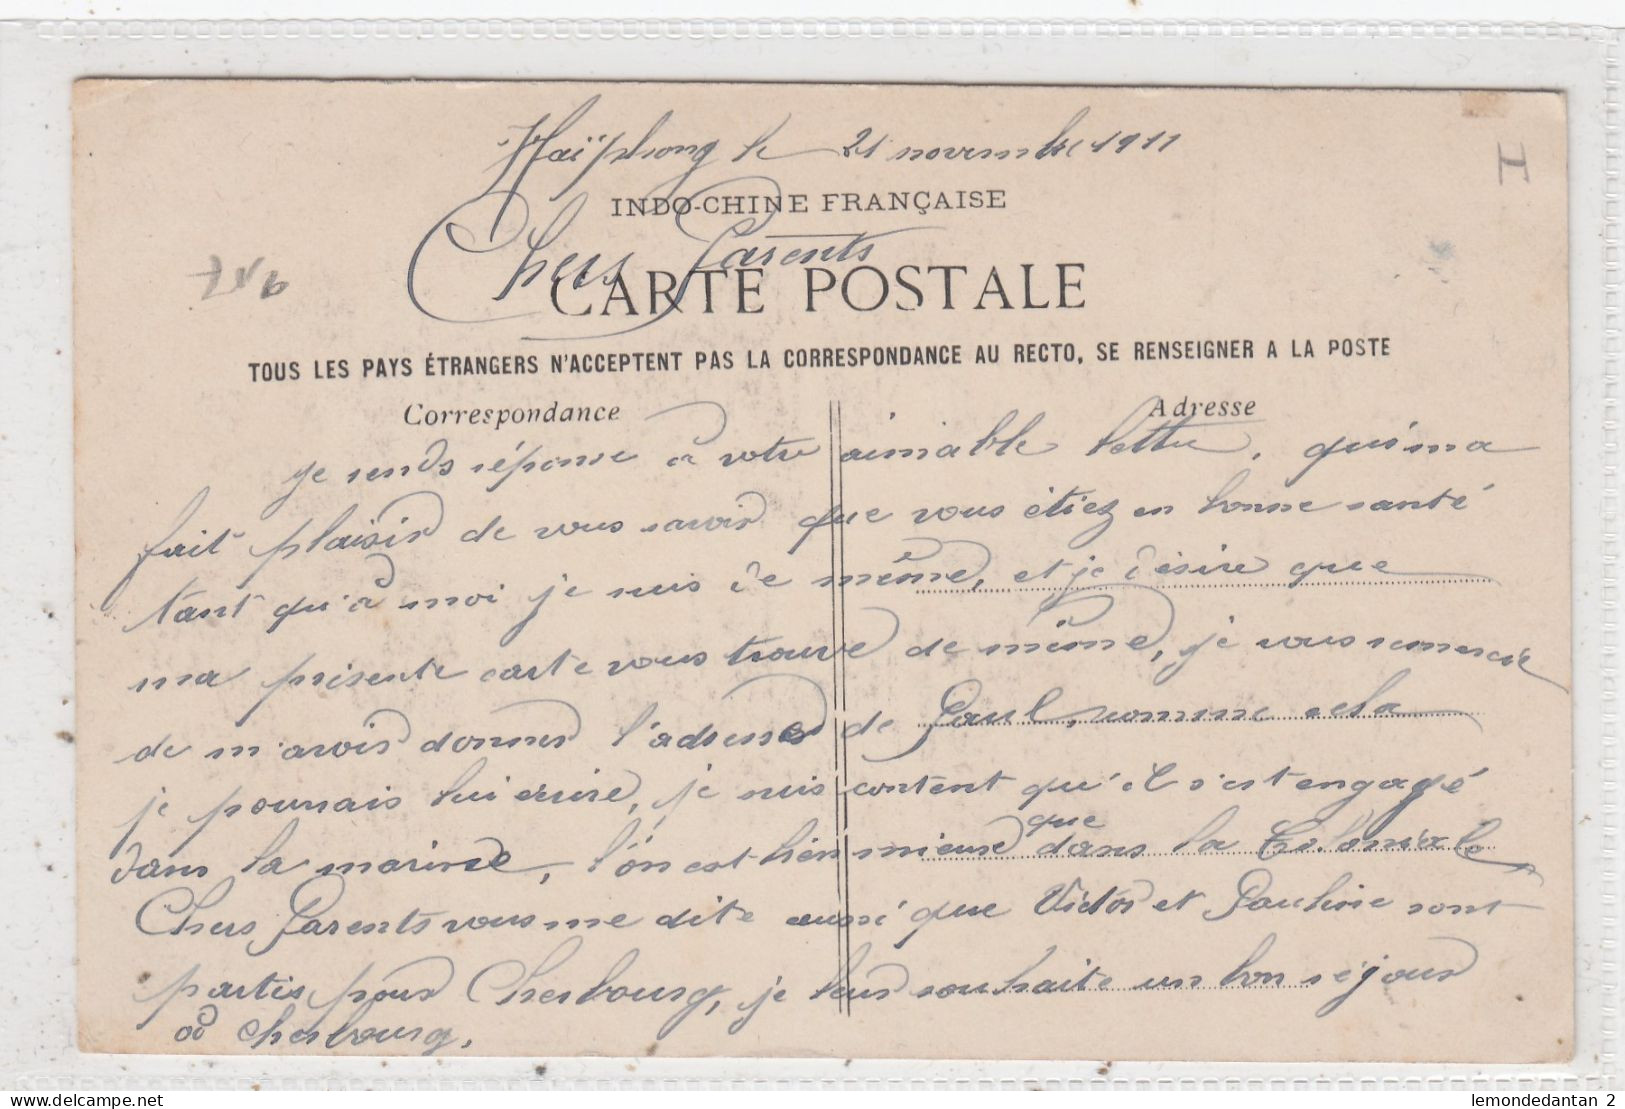 Haïphong le 21 novembre 1911
INDO-CHINE FRANÇAISE
Chers Parents
CARTE POSTALE
TOUS LES PAYS ÉTRANGERS N'ACCEPTENT PAS LA CORRESPONDANCE AU RECTO, SE RENSEIGNER A LA POSTE
Correspondance Adresse
H
je rends réponse à votre aimable lettre, qui m'a
fait plaisir de vous savoir que vous étiez en bonne santé
tant qu'à moi je suis de même, et je désire que
ma présente carte vous trouve de même, je vous remercie
de m'avoir donner l'adresse de Paul, comme cela
je pourrais lui écrire, je suis content qu'il s'est engagé
dans la marine, l'on est bien mieux que dans la Coloniale
Chers Parents vous me dite aussi que Victor et Pauline sont
partis pour Cherbourg, je leur souhaite un bon séjour
à Cherbourg.
lemondedantan 2